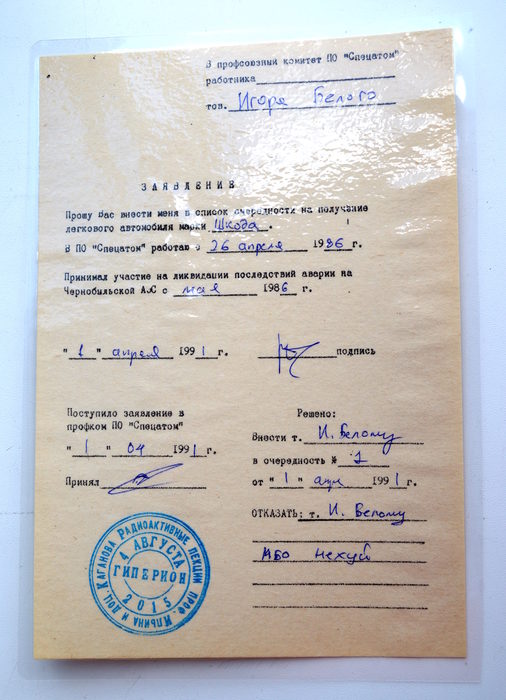 В профсоюзный комитет ПО "Спецатом"
работника
тов. Игоря Белого
ЗАЯВЛЕНИЕ
Прошу Вас внести меня в список очередности на получение
легкового автомобиля марки Шкода.
В ПО "Спецатом" работаю с 26 апреля 1986 г.
Принимал участие на ликвидации последствий аварии на
Чернобыльской АЭС с мая 1986 г.
"1" апреля 1991 г. подпись
Поступило заявление в
профком ПО "Спецатом"
"1" 04 1991 г.
Принял
Решено:
Внести т. И. Белому
в очередность № 1
от "1" апр 1991 г.
ОТКАЗАТЬ: т. И. Белому
ИБО нехуй
Радиоактивные лекции проф. Ильина и доц. Каганова
4 АВГУСТА
ГИПЕРИОН
2015